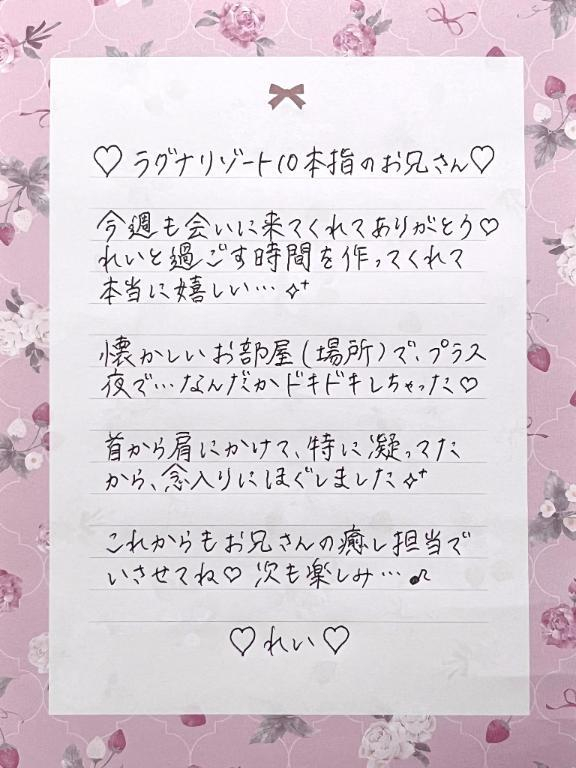 ♡ラグナリゾート10本指のお兄さん♡
今週も会いに来てくれてありがとう♡
れいと過ごす時間を作ってくれて
本当に嬉しい…✧⁺
懐かしいお部屋(場所)で、プラス
夜で…なんだかドキドキしちゃった♡
首から肩にかけて、特に凝ってた
から、念入りにほぐしました✧⁺
これからもお兄さんの癒し担当で
いさせてね♡ 次も楽しみ…♪
♡れい♡